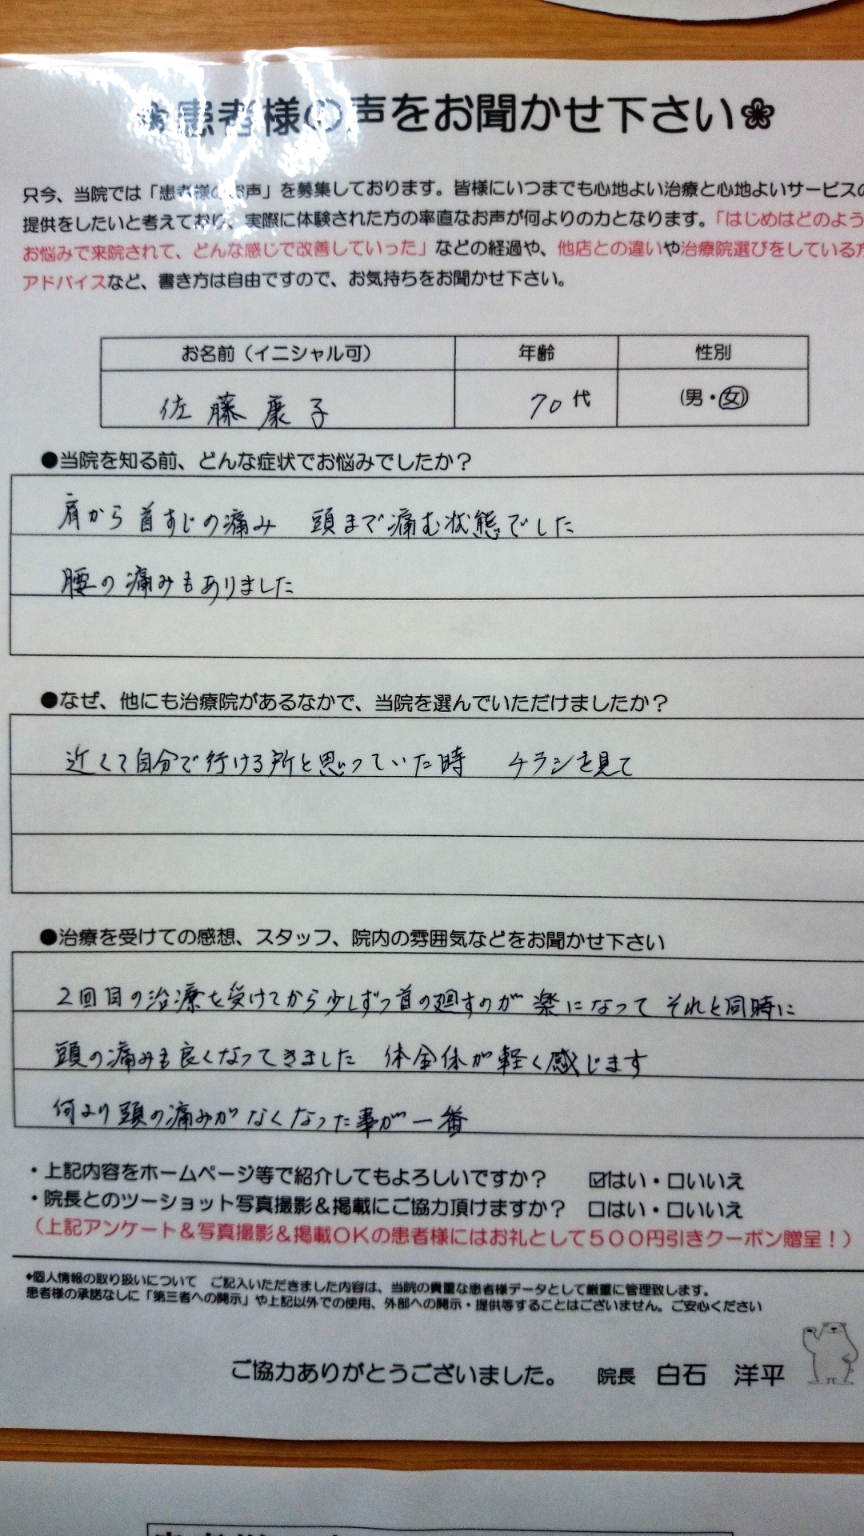 ❀患者様の声をお聞かせ下さい❀
只今、当院では「患者様のお声」を募集しております。皆様にいつまでも心地よい治療と心地よいサービスの
提供をしたいと考えており、実際に体験された方の率直なお声が何よりの力となります。「はじめはどのよう
お悩みで来院されて、どんな感じで改善していった」などの経過や、他店との違いや治療院選びをしている方
アドバイスなど、書き方は自由ですので、お気持ちをお聞かせ下さい。
お名前（イニシャル可） 年齢 性別
佐藤康子 70代 (男・女)
●当院を知る前、どんな症状でお悩みでしたか？
肩から首すじの痛み 頭まで痛む状態でした
腰の痛みもありました
●なぜ、他にも治療院があるなかで、当院を選んでいただけましたか？
近くて自分で行ける所と思っていた時 チラシを見て
●治療を受けての感想、スタッフ、院内の雰囲気などをお聞かせ下さい
2回目の治療を受けてから少しずつ首の廻すのが楽になって それと同時に
頭の痛みも良くなってきました 体全体が軽く感じます
何より頭の痛みがなくなった事が一番
・上記内容をホームページ等で紹介してもよろしいですか？ ☑はい・□いいえ
・院長とのツーショット写真撮影＆掲載にご協力頂けますか？ □はい・□いいえ
（上記アンケート＆写真撮影＆掲載OKの患者様にはお礼として５００円引きクーポン贈呈！）
◆個人情報の取り扱いについて ご記入いただきました内容は、当院の貴重な患者様データとして厳重に管理致します。
患者様の承諾なしに「第三者への開示」や上記以外での使用、外部への開示・提供等することはございません。ご安心ください
ご協力ありがとうございました。 院長 白石 洋平